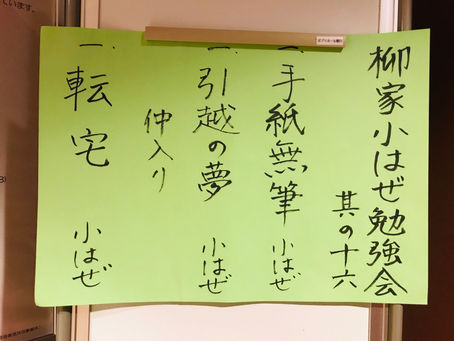 柳家小はぜ勉強会
其の十六
一、手紙無筆 小はぜ
一、引越の夢 小はぜ
仲入り
一、転宅 小はぜ